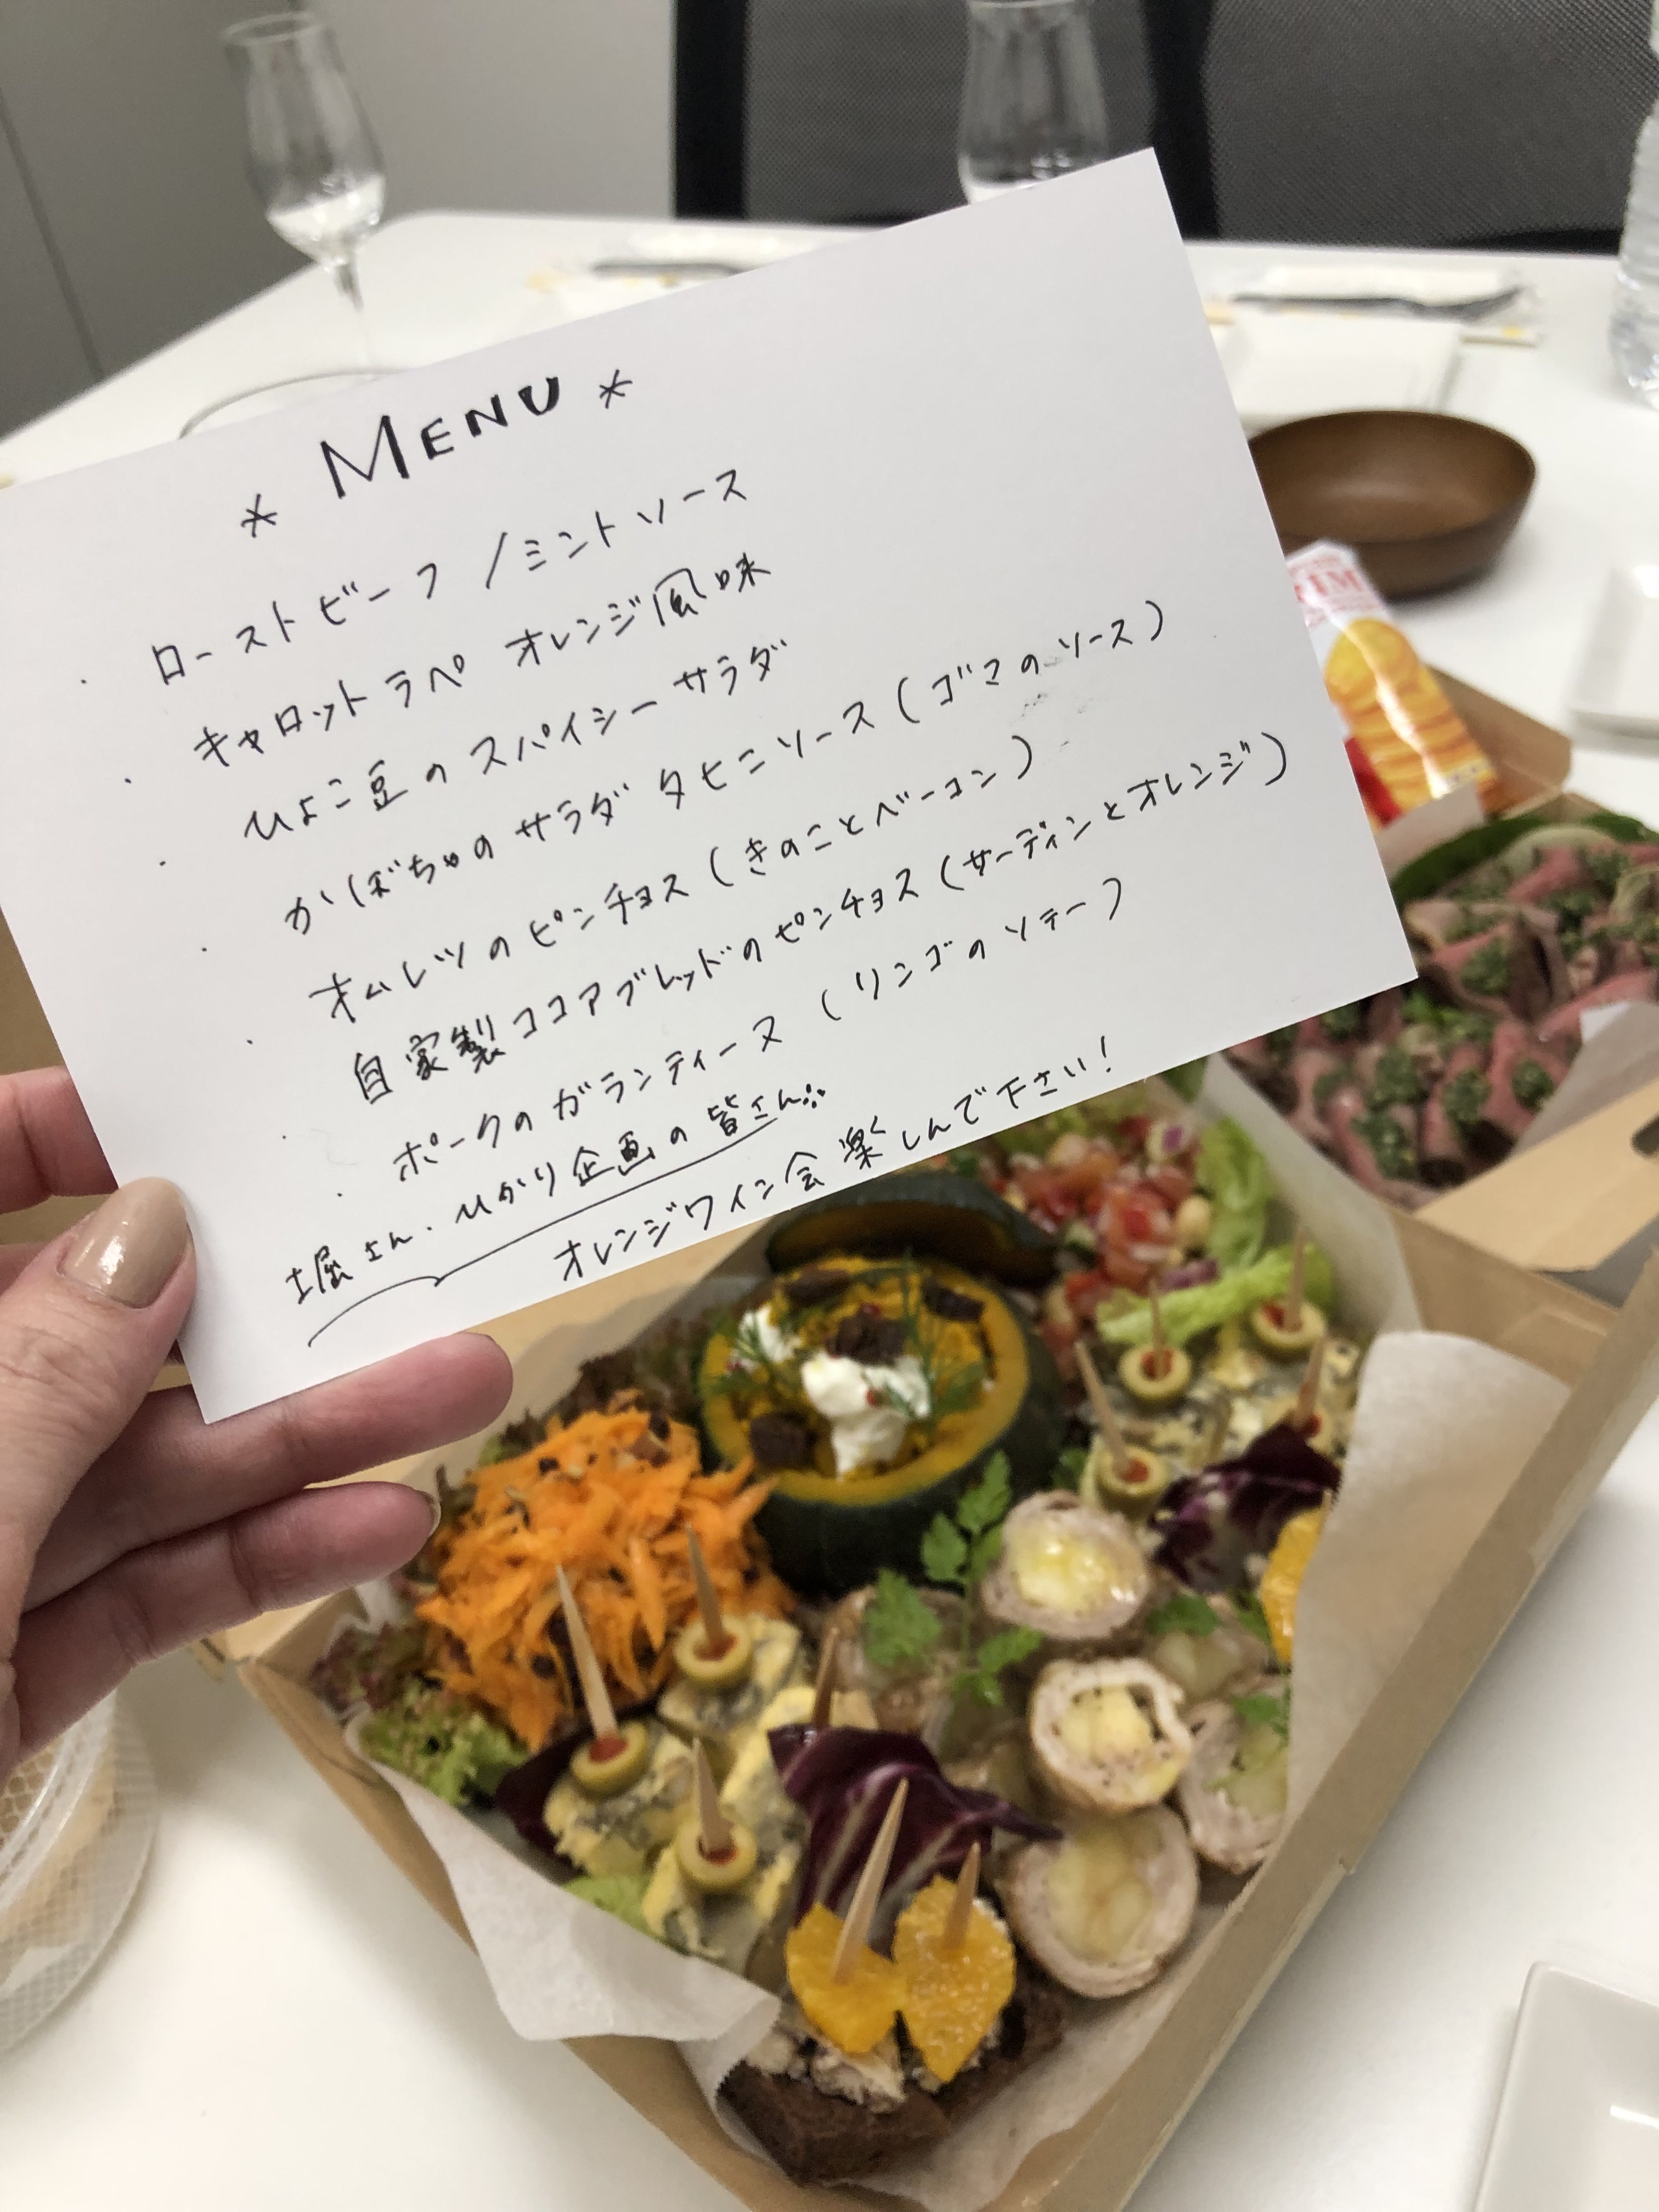 * MENU *
・ローストビーフ /ミントソース
・キャロットラペ オレンジ風味
・ひよこ豆のスパイシーサラダ
・かぼちゃのサラダ タヒニソース (ゴマのソース)
・オムレツのピンチョス (きのことベーコン)
・自家製ココアブレッドのピンチョス (サーディンとオレンジ)
・ポークのガランティーヌ (リンゴのソテー)
堀さん・ひかり企画の皆さん
オレンジワイン会楽しんで下さい!